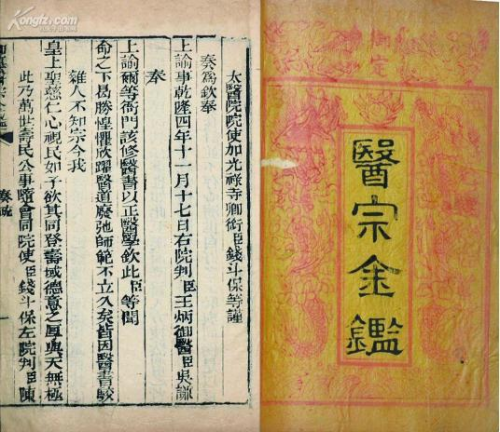 御定
醫宗金鑑
太醫院院使加光祿寺卿銜臣錢斗保等謹
奏為欽奉
上諭事乾隆四年十一月十七日右院判臣王炳御醫臣吳謙
奉
上諭爾等衙門該修醫書以正醫學欽此臣等聞
命之下曷勝惶懼欣躍醫道廢弛師範不立久矣皆因醫書駁
雜人不知宗今我
皇上聖慈仁心視民如子欲其同登壽域德意之厚與天無極
此乃萬世壽民公事隨會同院使臣錢斗保左院判臣陳
奏疏
Kongfz.com